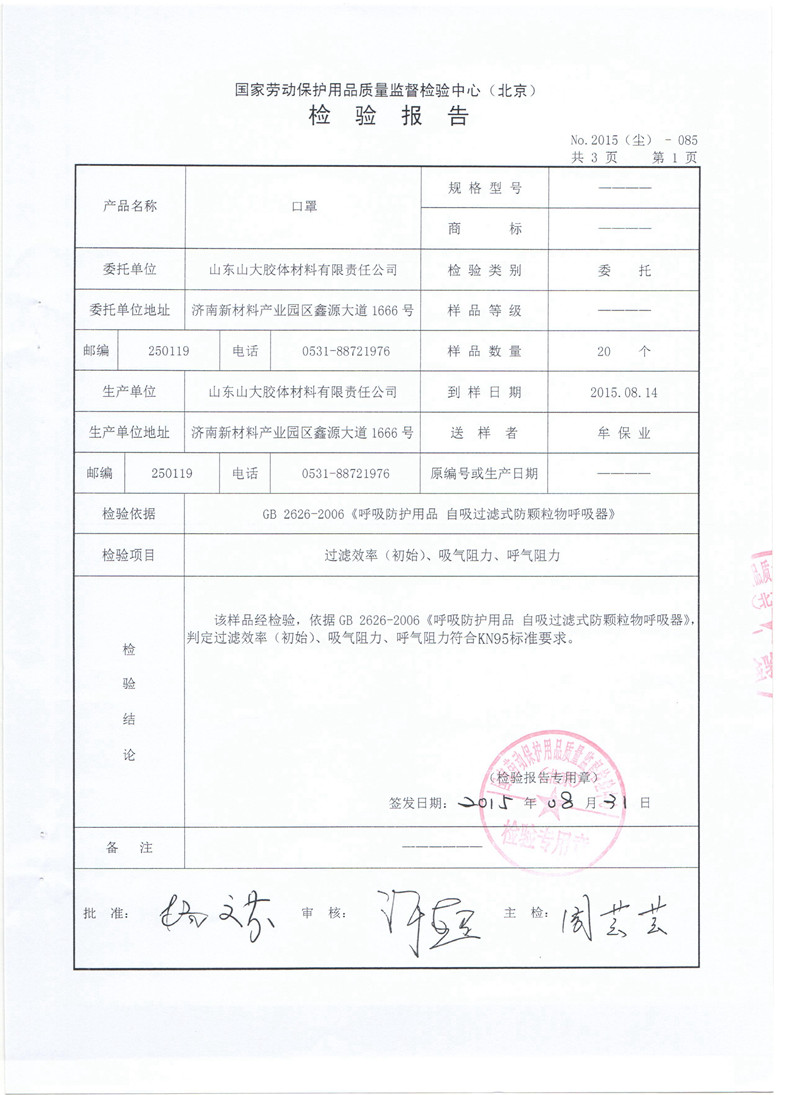 国家劳动保护用品质量监督检验中心（北京）
检 验 报 告
No.2015（尘）－085
共 3 页 第 1 页
产品名称 口罩 规 格 型 号 ————
商 标 ————
委托单位 山东山大胶体材料有限责任公司 检 验 类 别 委 托
委托单位地址 济南新材料产业园区鑫源大道 1666 号 样 品 等 级 ————
邮编 250119 电话 0531-88721976 样 品 数 量 20 个
生产单位 山东山大胶体材料有限责任公司 到 样 日 期 2015.08.14
生产单位地址 济南新材料产业园区鑫源大道 1666 号 送 样 者 牟 保 业
邮编 250119 电话 0531-88721976 原编号或生产日期 ————
检验依据 GB 2626-2006《呼吸防护用品 自吸过滤式防颗粒物呼吸器》
检验项目 过滤效率（初始）、吸气阻力、呼气阻力
检验结论
该样品经检验，依据 GB 2626-2006《呼吸防护用品 自吸过滤式防颗粒物呼吸器》，
判定过滤效率（初始）、吸气阻力、呼气阻力符合KN95标准要求。
（检验报告专用章）
签发日期：2015 年 08 月 31 日
国家劳动保护用品质量监督检验中心
（北京）
检验专用章
备 注 ——————
批 准： 杨文芬 审 核： 主 检： 周芸芸
品质
（北
检验